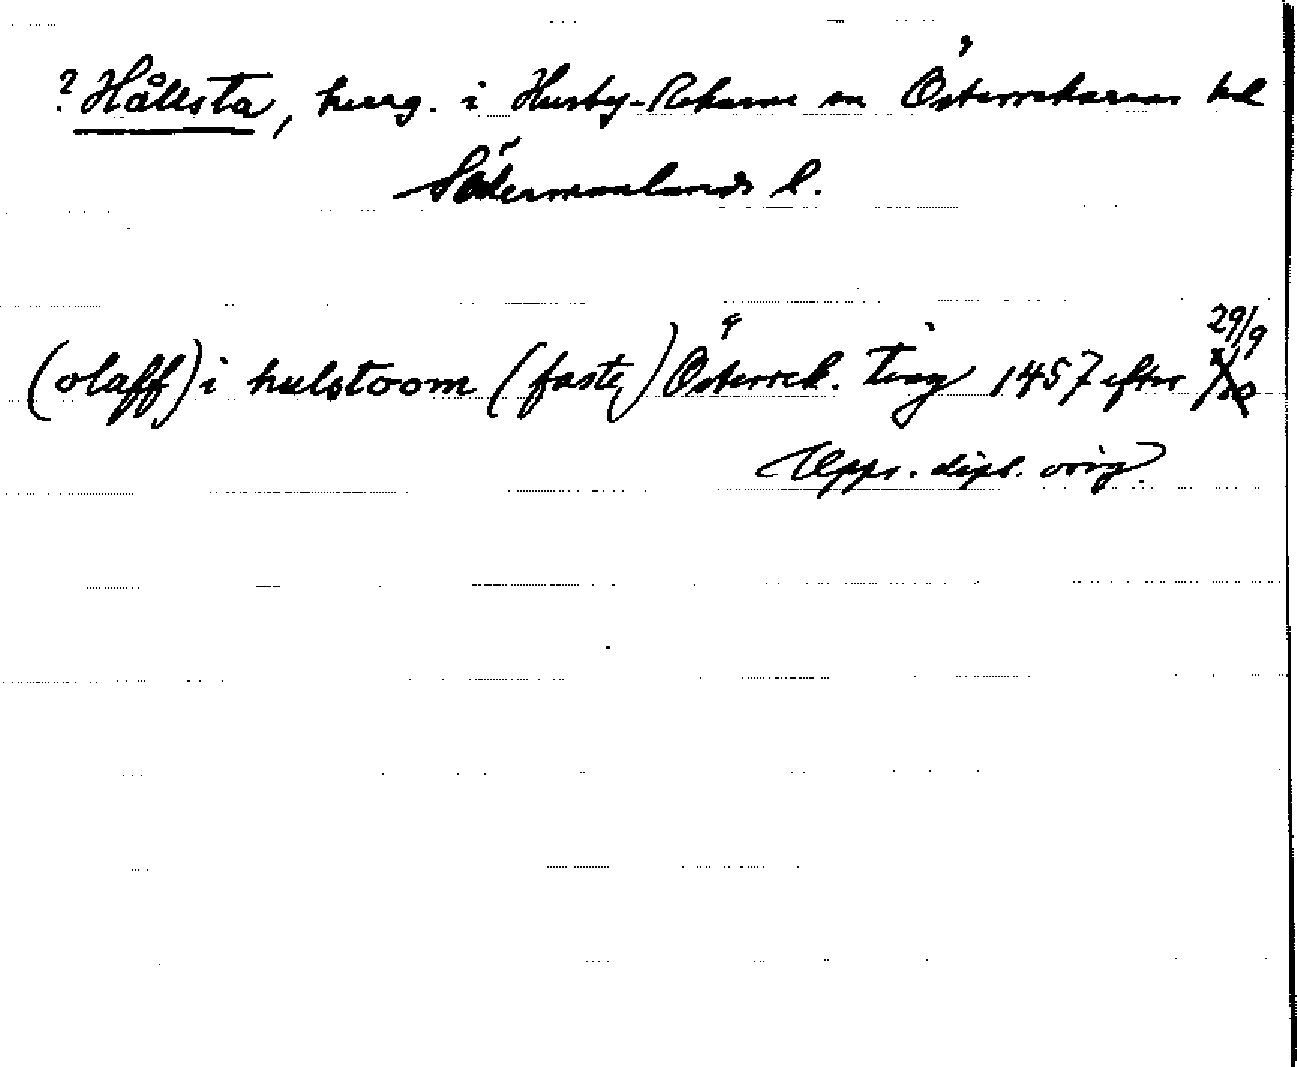 ? Hållsta, herrg. i Husby-Rekarne sn Österrekarnes hd
Södermanlands l.
(olaff) i hulstoom (faste) Österrek. Ting 1457 efter 29/9
Upps. dipl. orig.